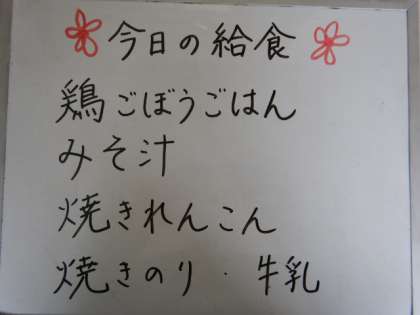 今日の給食
鶏ごぼうごはん
みそ汁
焼きれんこん
焼きのり・牛乳